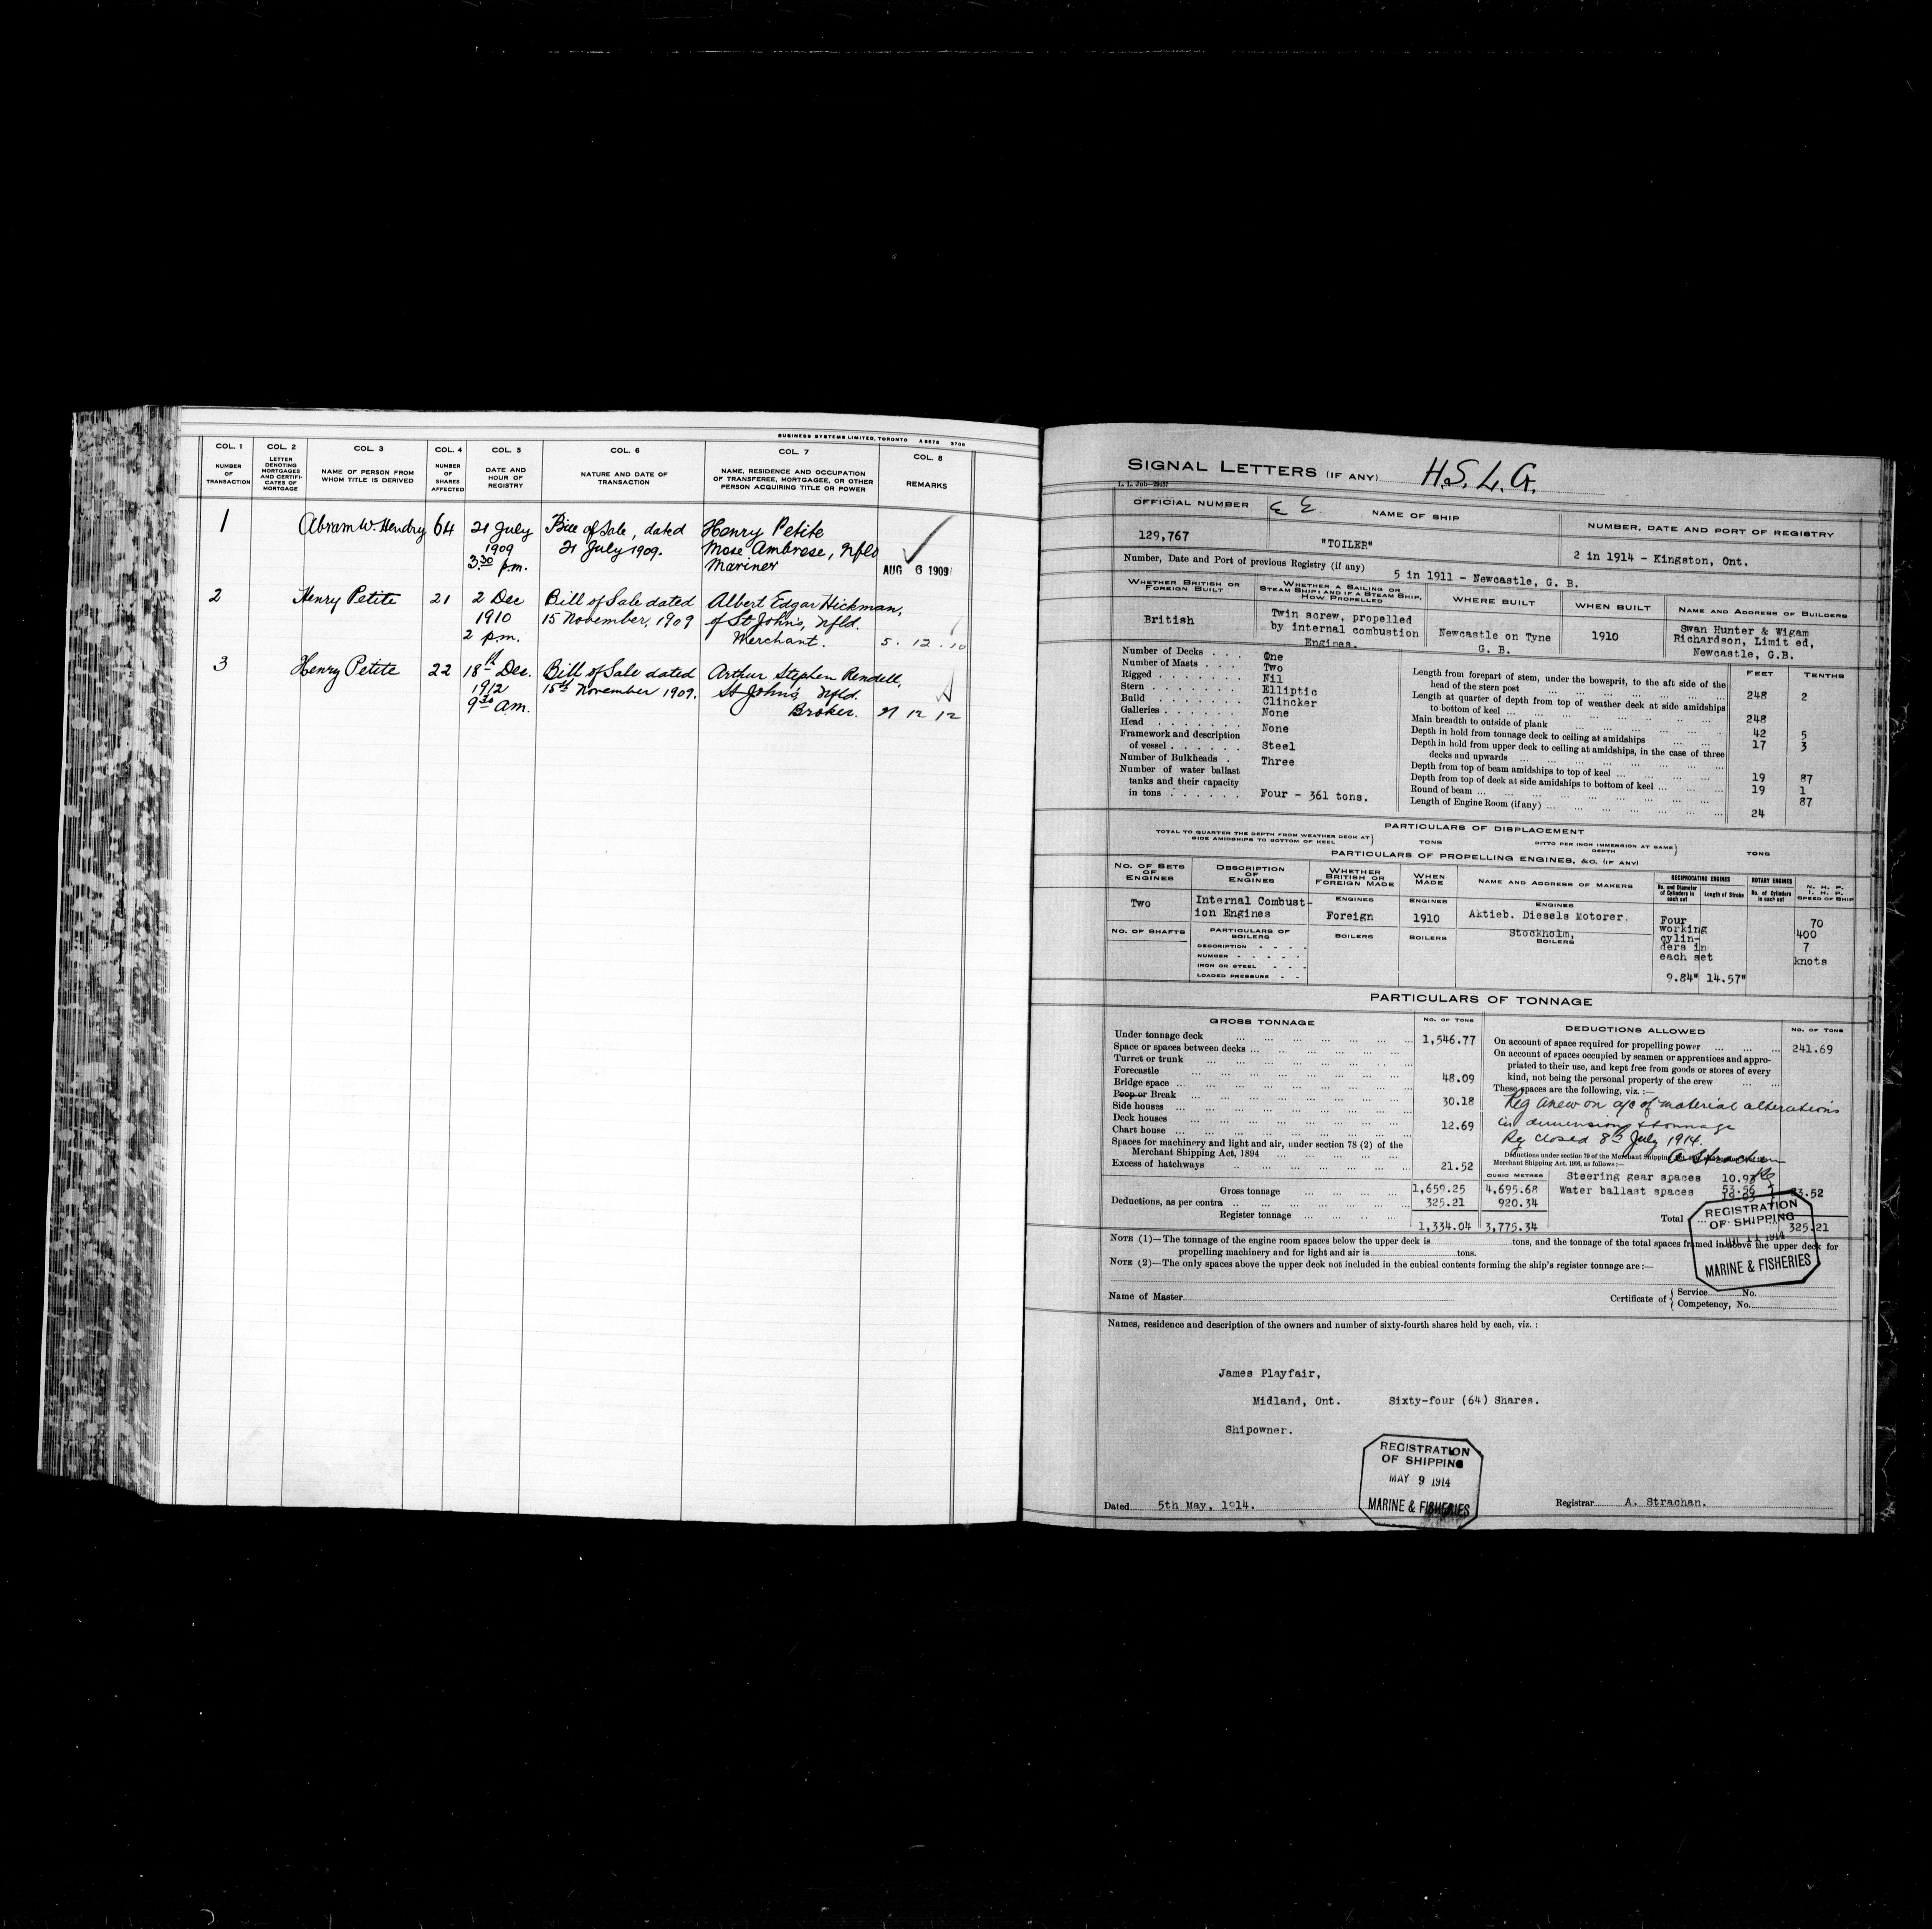 BUSINESS SYSTEMS LIMITED, TORONTO A 5678 3708
COL. 1 COL. 2 COL. 3 COL. 4 COL. 5 COL. 6 COL. 7 COL. 8
NUMBER OF TRANSACTION
LETTER DENOTING MORTGAGES AND CERTIFI-CATES OF MORTGAGE
NAME OF PERSON FROM WHOM TITLE IS DERIVED
NUMBER OF SHARES AFFECTED
DATE AND HOUR OF REGISTRY
NATURE AND DATE OF TRANSACTION
NAME, RESIDENCE AND OCCUPATION OF TRANSFEREE, MORTGAGEE, OR OTHER PERSON ACQUIRING TITLE OR POWER
REMARKS
1 Abram W. Hendry 64 21 July Bill of Sale, dated Henry Petite
1909 21 July 1909. Mose Ambrose, Nfld
3.30 p.m. Mariner AUG 6 1909
2 Henry Petite 21 2 Dec Bill of Sale dated Albert Edgar Hickman,
1910 15 November, 1909 of St John's, Nfld.
2 p.m. Merchant. 5. 12. 10
3 Henry Petite 22 18th Dec. Bill of Sale dated Arthur Stephen Rendell,
1912 15th November 1909. St John's Nfld.
9.30 a.m. Broker. 21 12 12
SIGNAL LETTERS (IF ANY) H.S.L.G.
L. L. Job—29457
OFFICIAL NUMBER NAME OF SHIP NUMBER, DATE AND PORT OF REGISTRY
129,767 "TOILER" 2 in 1914 - Kingston, Ont.
Number, Date and Port of previous Registry (if any) 5 in 1911 - Newcastle, G. B.
WHETHER BRITISH OR FOREIGN BUILT
WHETHER A SAILING OR STEAM SHIP: AND IF A STEAM SHIP, HOW PROPELLED
WHERE BUILT
WHEN BUILT
NAME AND ADDRESS OF BUILDERS
British
Twin screw, propelled
by internal combustion
Engines.
Newcastle on Tyne
G. B.
1910
Swan Hunter & Wigam
Richardson, Limit ed,
Newcastle, G.B.
Number of Decks . . . One
Number of Masts . . . Two
Rigged . . . Nil
Stern . . . Elliptic
Build . . . Clincker
Galleries . . . None
Head . . . None
Framework and description
of vessel . . . Steel
Number of Bulkheads . Three
Number of water ballast
tanks and their capacity
in tons . . . Four - 361 tons.
FEET TENTHS
Length from forepart of stem, under the bowsprit, to the aft side of the
head of the stern post 248 2
Length at quarter of depth from top of weather deck at side amidships
to bottom of keel 248
Main breadth to outside of plank 42 5
Depth in hold from tonnage deck to ceiling at amidships 17 3
Depth in hold from upper deck to ceiling at amidships, in the case of three
decks and upwards
Depth from top of beam amidships to top of keel 19 87
Depth from top of deck at side amidships to bottom of keel 19 1
Round of beam 87
Length of Engine Room (if any) 24
PARTICULARS OF DISPLACEMENT
TOTAL TO QUARTER THE DEPTH FROM WEATHER DECK AT SIDE AMIDSHIPS TO BOTTOM OF KEEL } TONS DITTO PER INCH IMMERSION AT SAME DEPTH } TONS
PARTICULARS OF PROPELLING ENGINES, &C. (IF ANY)
NO. OF SETS OF ENGINES
DESCRIPTION OF ENGINES
WHETHER BRITISH OR FOREIGN MADE
WHEN MADE
NAME AND ADDRESS OF MAKERS
RECIPROCATING ENGINES
No. and Diameter of Cylinders in each set
Length of Stroke
ROTARY ENGINES
No. of Cylinders in each set
N. H. P.
I. H. P.
SPEED OF SHIP
ENGINES ENGINES ENGINES
Two
Internal Combust-
ion Engines
Foreign
1910
Aktieb. Diesels Motorer.
Stockholm,
Four
working
cylin-
ders in
each set
9.84" 14.57"
70
400
7
knots
NO. OF SHAFTS
PARTICULARS OF BOILERS
BOILERS BOILERS BOILERS
DESCRIPTION
NUMBER
IRON OR STEEL
LOADED PRESSURE
PARTICULARS OF TONNAGE
GROSS TONNAGE NO. OF TONS
Under tonnage deck 1,546.77
Space or spaces between decks
Turret or trunk
Forecastle 48.09
Bridge space
Poop or Break 30.18
Side houses
Deck houses 12.69
Chart house
Spaces for machinery and light and air, under section 78 (2) of the
Merchant Shipping Act, 1894
Excess of hatchways 21.52
CUBIC METRES
Gross tonnage 1,659.25 4,695.68
Deductions, as per contra 325.21 920.34
Register tonnage 1,334.04 3,775.34
DEDUCTIONS ALLOWED NO. OF TONS
On account of space required for propelling power 241.69
On account of spaces occupied by seamen or apprentices and appro-
priated to their use, and kept free from goods or stores of every
kind, not being the personal property of the crew
These spaces are the following, viz. :—
Reg anew on a/c of material alterations
in dimensions & tonnage
Reg closed 8th July 1914.
A Strachan
Deductions under section 79 of the Merchant Shipping
Merchant Shipping Act. 1906, as follows :—
Steering gear spaces 10.93
Water ballast spaces 53.56
Total 325.21
REGISTRATION
OF SHIPPING
JUL 11 1914
MARINE & FISHERIES
NOTE (1)—The tonnage of the engine room spaces below the upper deck is tons, and the tonnage of the total spaces framed in above the upper deck for
propelling machinery and for light and air is tons.
NOTE (2)—The only spaces above the upper deck not included in the cubical contents forming the ship's register tonnage are :—
Name of Master Certificate of { Service No.
Competency, No.
Names, residence and description of the owners and number of sixty-fourth shares held by each, viz. :
James Playfair,
Midland, Ont. Sixty-four (64) Shares.
Shipowner.
REGISTRATION
OF SHIPPING
MAY 9 1914
MARINE & FISHERIES
Dated 5th May, 1914. Registrar A. Strachan.